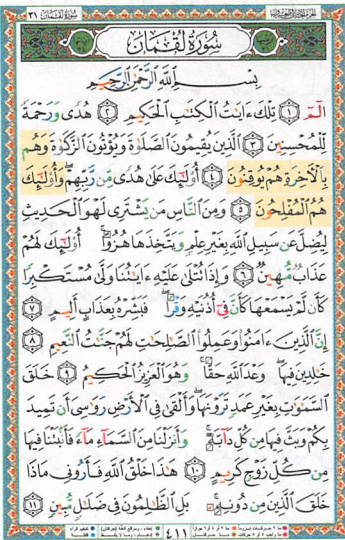 سُورَةُ لُقْمَان ٣١ الجزء الحادي والعشرون
سُورَةُ لُقْمَانَ
بِسْمِ ٱللَّهِ ٱلرَّحْمَٰنِ ٱلرَّحِيمِ
الٓمٓ ١ تِلْكَ ءَايَٰتُ ٱلْكِتَٰبِ ٱلْحَكِيمِ ٢ هُدًى وَرَحْمَةً
لِّلْمُحْسِنِينَ ٣ ٱلَّذِينَ يُقِيمُونَ ٱلصَّلَوٰةَ وَيُؤْتُونَ ٱلزَّكَوٰةَ وَهُم
بِٱلْءَاخِرَةِ هُمْ يُوقِنُونَ ٤ أُو۟لَٰٓئِكَ عَلَىٰ هُدًى مِّن رَّبِّهِمْ ۖ وَأُو۟لَٰٓئِكَ
هُمُ ٱلْمُفْلِحُونَ ٥ وَمِنَ ٱلنَّاسِ مَن يَشْتَرِى لَهْوَ ٱلْحَدِيثِ
لِيُضِلَّ عَن سَبِيلِ ٱللَّهِ بِغَيْرِ عِلْمٍ وَيَتَّخِذَهَا هُزُوًا ۚ أُو۟لَٰٓئِكَ لَهُمْ
عَذَابٌ مُّهِينٌ ٦ وَإِذَا تُتْلَىٰ عَلَيْهِ ءَايَٰتُنَا وَلَّىٰ مُسْتَكْبِرًا
كَأَن لَّمْ يَسْمَعْهَا كَأَنَّ فِىٓ أُذُنَيْهِ وَقْرًا ۖ فَبَشِّرْهُ بِعَذَابٍ أَلِيمٍ ٧
إِنَّ ٱلَّذِينَ ءَامَنُوا۟ وَعَمِلُوا۟ ٱلصَّٰلِحَٰتِ لَهُمْ جَنَّٰتُ ٱلنَّعِيمِ ٨
خَٰلِدِينَ فِيهَا ۖ وَعْدَ ٱللَّهِ حَقًّا ۚ وَهُوَ ٱلْعَزِيزُ ٱلْحَكِيمُ ٩ خَلَقَ
ٱلسَّمَٰوَٰتِ بِغَيْرِ عَمَدٍ تَرَوْنَهَا ۖ وَأَلْقَىٰ فِى ٱلْأَرْضِ رَوَٰسِىَ أَن تَمِيدَ
بِكُمْ وَبَثَّ فِيهَا مِن كُلِّ دَآبَّةٍ ۚ وَأَنزَلْنَا مِنَ ٱلسَّمَآءِ مَآءً فَأَنۢبَتْنَا فِيهَا
مِن كُلِّ زَوْجٍ كَرِيمٍ ١٠ هَٰذَا خَلْقُ ٱللَّهِ فَأَرُونِى مَاذَا
خَلَقَ ٱلَّذِينَ مِن دُونِهِۦ ۚ بَلِ ٱلظَّٰلِمُونَ فِى ضَلَٰلٍ مُّبِينٍ ١١
٤١١